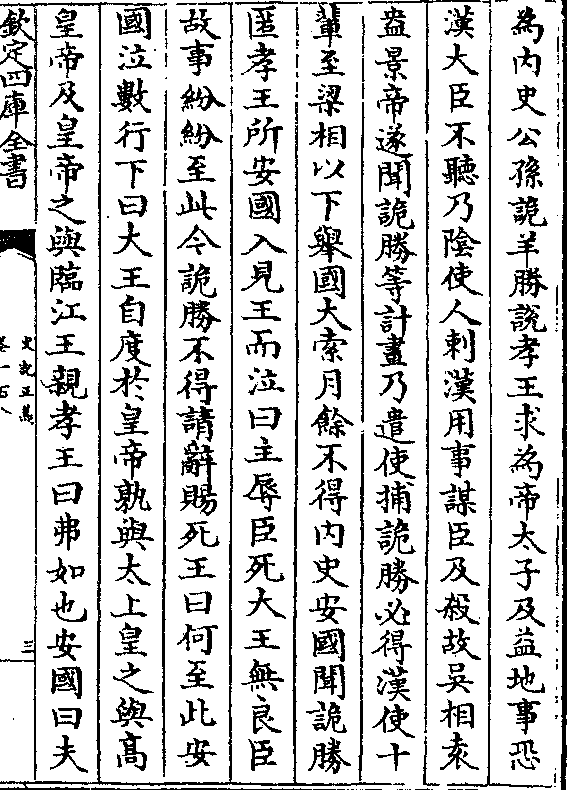 為内史公孫詭羊勝說孝王求為帝太子及益地事恐
漢大臣不聽乃陰使人刺漢用事謀臣及殺故吳相袁
盎景帝遂聞詭勝等計畫乃遣使捕詭勝必得漢使十
輩至梁相以下舉國大索月餘不得内史安國聞詭勝
匿孝王所安國入見王而泣曰主辱臣死大王無良臣
故事紛紛至此今詭勝不得請辭賜死王曰何至此安
國泣數行下曰大王自度於皇帝孰與太上皇之與髙
皇帝及皇帝之與臨江王親孝王曰弗如也安國曰夫
欽定四庫全書
史記正義
卷一百八
三